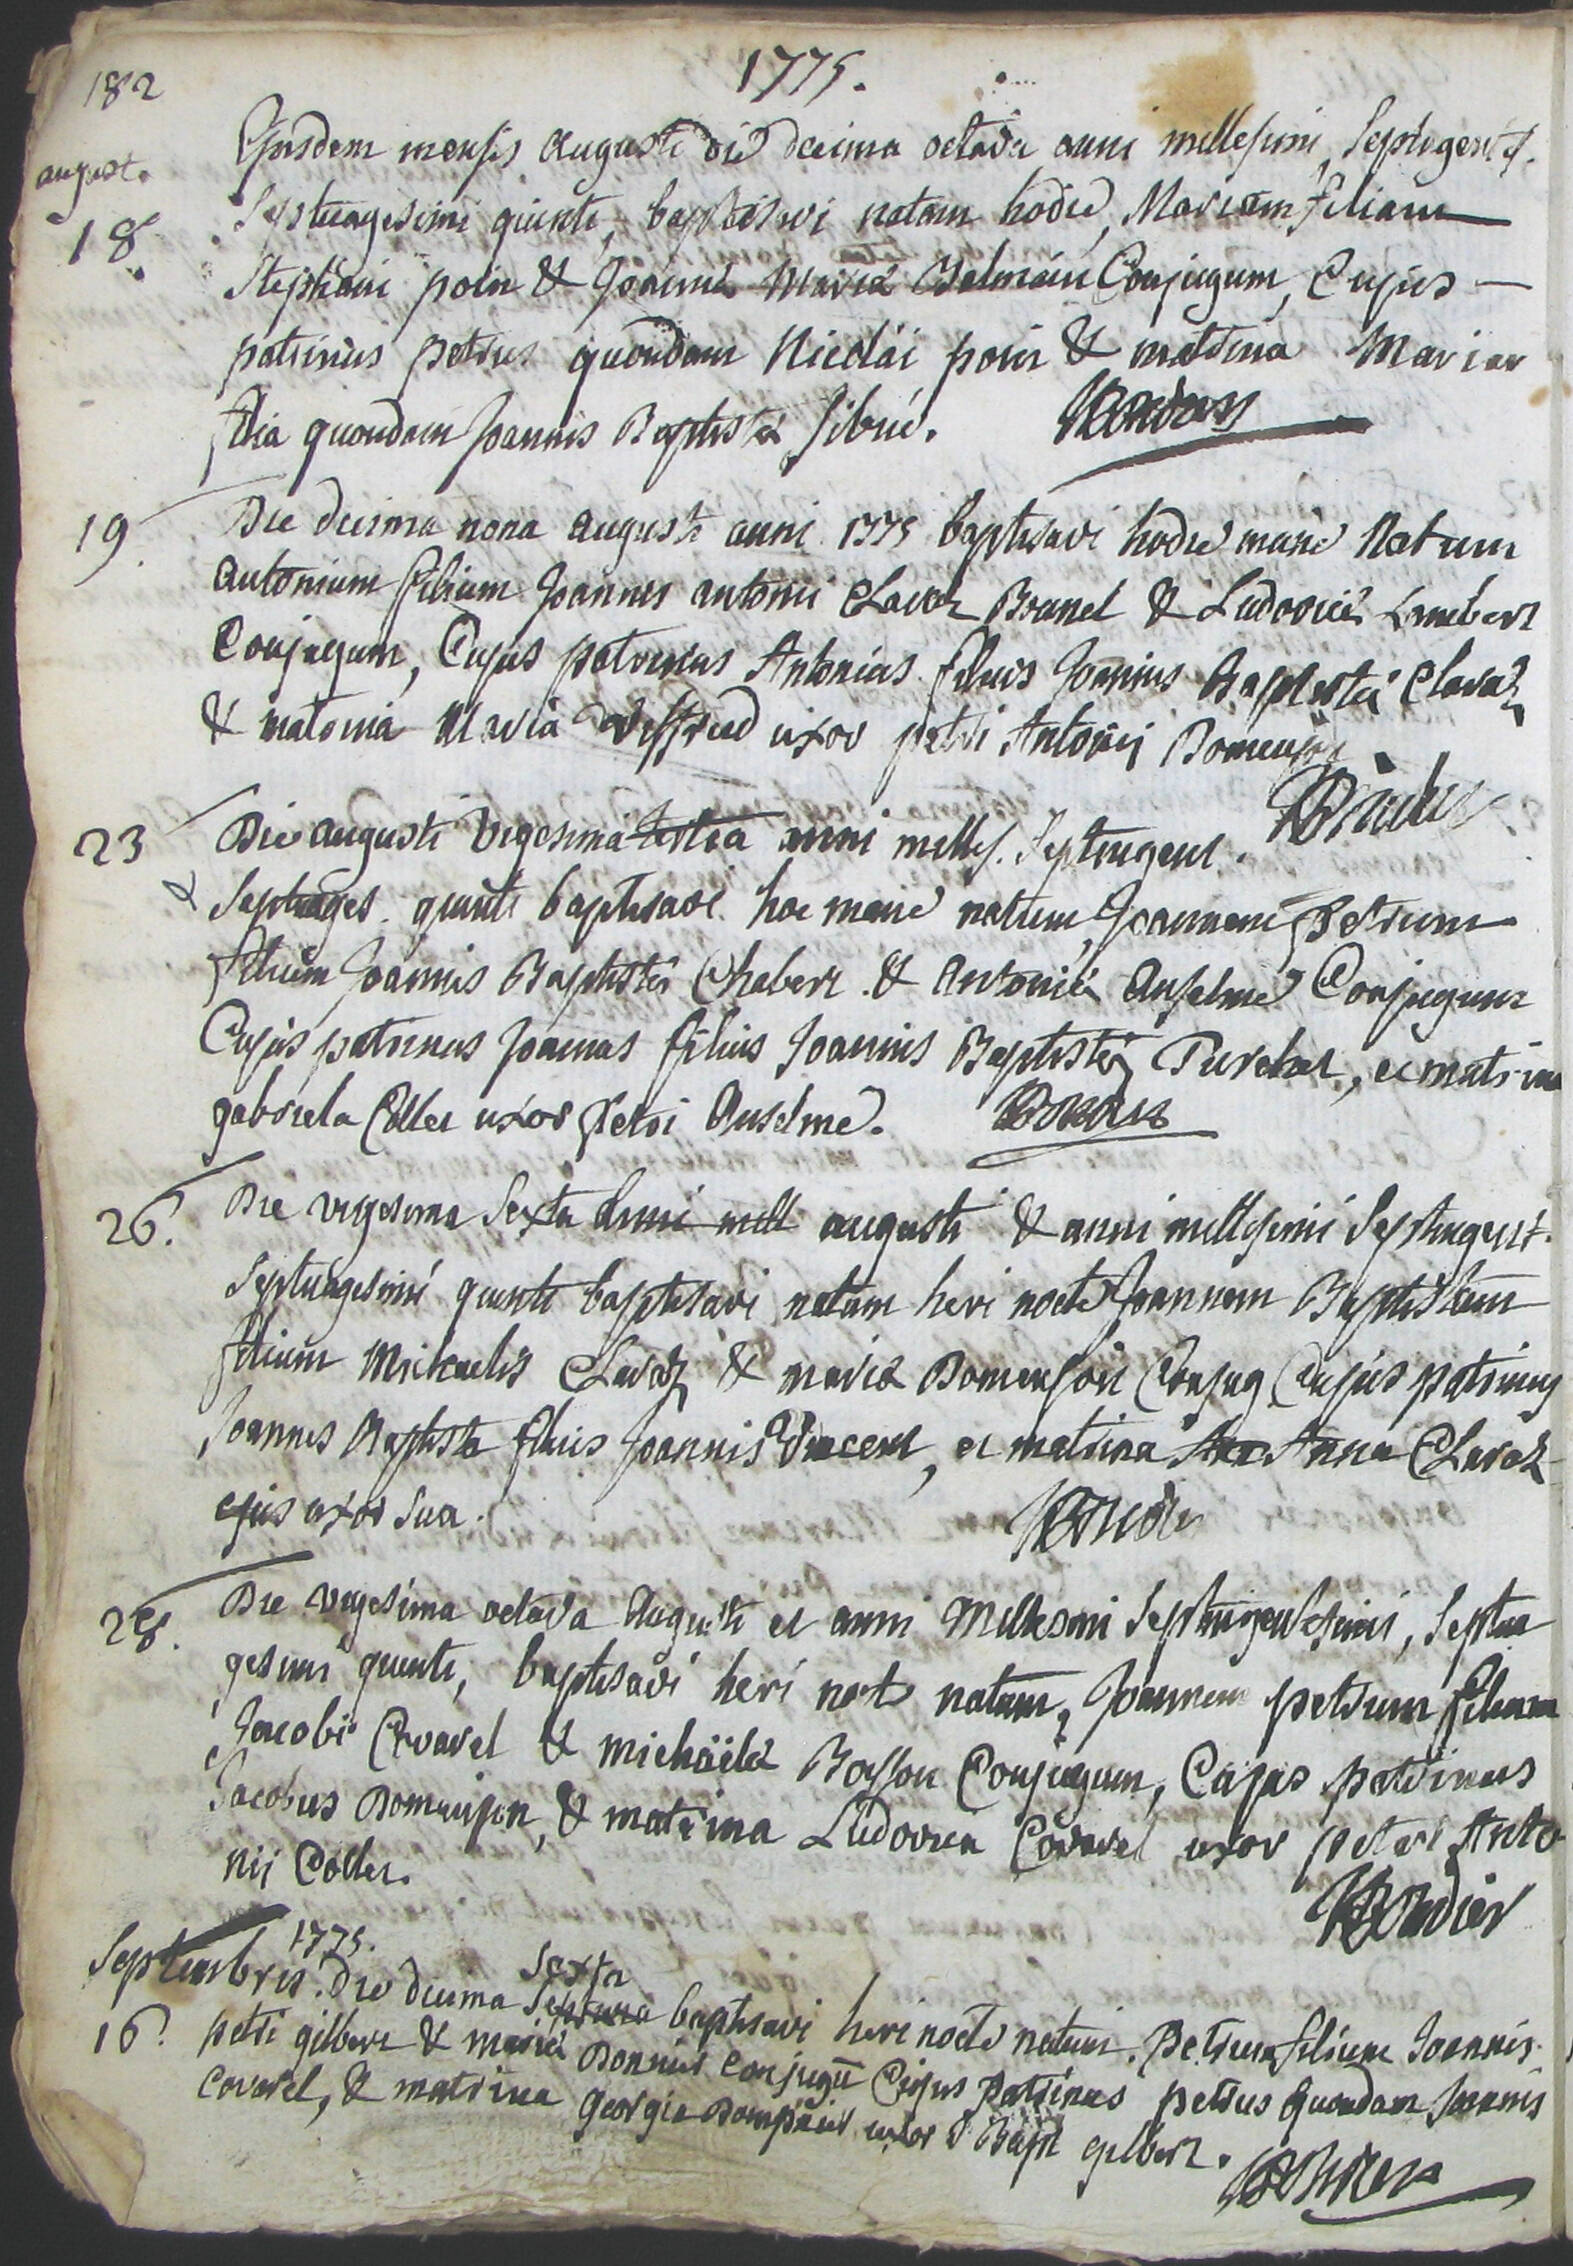 182
1775.
august.
18.
Ejusdem mensis augusti die decima octava anni millesimi, Septingent.
Septuagesimi quinti, baptisavi natam hodie, Mariam filiam
Stephani poin & Joannæ Mariæ Belmain Conjugum, Cujus
patrinus petrus quondam Nicolai poin & matrina Maria
filia quondam Joannis Baptistæ Sibué.
19.
Die decima nona augusti anni 1775 baptisavi hodie mane Natum
Antonium filium Joannis antonii Claraz Brunel & Ludovicæ Lambert
Conjugum, Cujus patrinus Antonius filius Joannis Baptistæ Claraz
& matrina Maria uxor petri Antonij Domenjon
23
Die augusti Vigesima tertia anni milles. Septingent.
& Septuages. quinti baptisavi hoc mane natum, Joannem Petrum
filium Joannis Baptistæ Chaberz & Antoniæ Anselme Conjugum
Cujus patrinus Joannes filius Joannis Baptistæ, et matrina
gabriela Collet uxor petri Anselme.
26.
Die vigesima Sexta anni mill augusti & anni millesimi Septingent.
Septuagesimi quinti baptisavi natum heri nocte Joannem Baptistam
filium Michaelis Claraz & mariæ Domenjon Conjug Cujus patrinus
Joannes Baptista filius Joannis Vincent, et matrina Anna Claraz
ejus uxor sua.
28.
Die vigesima octava Augusti et anni Millesimi Septingentesimi, Septua
gesimi quinti, baptisavi heri noct natum, Joannem petrum filium
Jacobi Covarel & michäelæ Bosson Conjugum, Cujus patrinus
Jacobus Domenjon, & matrina Ludovica Covarel uxor petri Anto
nij Collet.
Rondier
Septembris. 1775. die decima Septima Sexta baptisavi heri nocte natum. Petrum filium Joannis
16.
petri gilbert & mariæ Donnier conjugū Cujus Patrinus petrus quondam Joannis
Covarel, & matrina Georgia Dompnier uxor J Bapt gilbert.